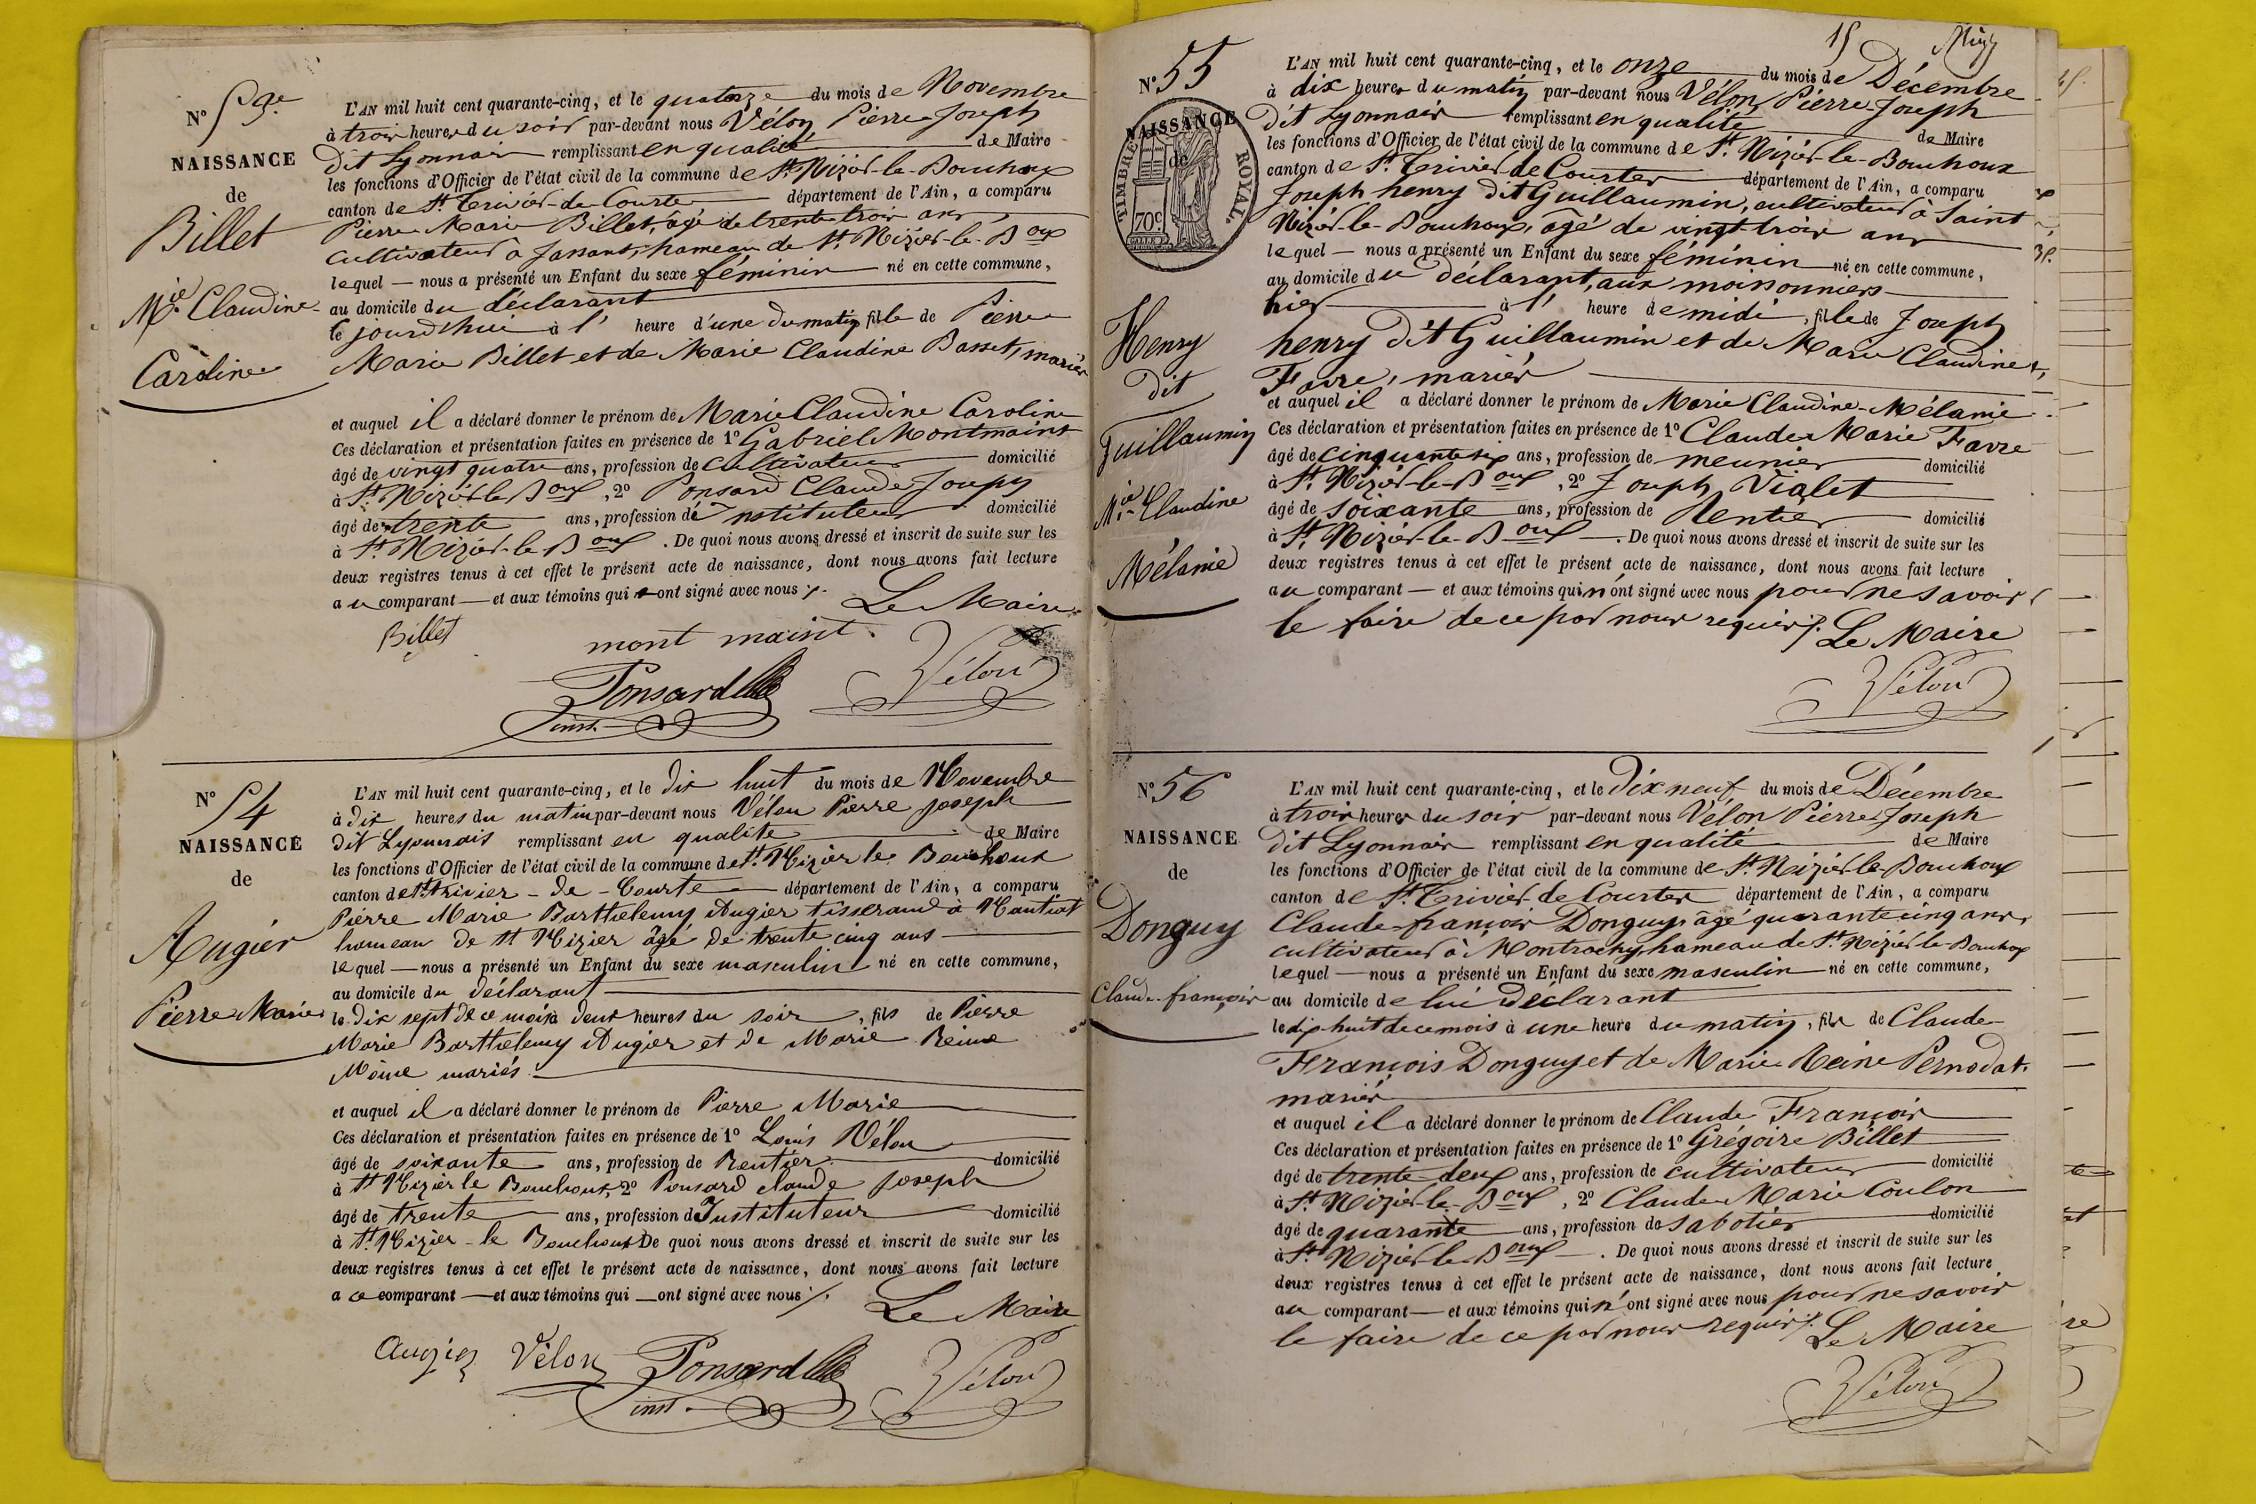 N° 53e
NAISSANCE
de
Billet
Mie Claudine
Caroline
L'AN mil huit cent quarante-cinq, et le quatorze du mois de Novembre
à trois heures du soir par-devant nous Vélon Pierre Joseph
dit Lyonnais remplissant en qualité de Maire
les fonctions d'Officier de l'état civil de la commune de St Nizier-le-Bouchoux
canton de St Trivier-de-Courtes département de l'Ain, a comparu
Pierre Marie Billet, âgé de trente trois ans,
cultivateur à Jassans, hameau de St Nizier-le-Boux
lequel — nous a présenté un Enfant du sexe féminin né en cette commune,
au domicile du déclarant
le jourd'hui à l' heure d'une du matin fille de Pierre
Marie Billet et de Marie Claudine Basset, mariés
et auquel il a déclaré donner le prénom de Marie Claudine Caroline
Ces déclaration et présentation faites en présence de 1° Gabriel Montmaint
âgé de vingt quatre ans, profession de cultivateur domicilié
à St Nizier-le-Boux, 2° Ponsard Claude Joseph
âgé de trente ans, profession de Instituteur domicilié
à St Nizier-le-Boux. De quoi nous avons dressé et inscrit de suite sur les
deux registres tenus à cet effet le présent acte de naissance, dont nous avons fait lecture
au comparant — et aux témoins qui — ont signé avec nous ./.
Le Maire
Billet
mont maint
Ponsard
inst.
Vélon
N° 54
NAISSANCE
de
Augier
Pierre Marie
L'AN mil huit cent quarante-cinq, et le dix huit du mois de Novembre
à dix heures du matin par-devant nous Vélon Pierre Joseph
dit Lyonnais remplissant en qualité de Maire
les fonctions d'Officier de l'état civil de la commune de St Nizier le Bouchoux
canton de St Trivier-de-Courte département de l'Ain, a comparu
Pierre Marie Barthelemy Augier tisserand à Mantiat
hameau de St Nizier âgé de trente cinq ans
lequel — nous a présenté un Enfant du sexe masculin né en cette commune,
au domicile du déclarant
le dix sept de ce mois à deux heures du soir, fils de Pierre
Marie Barthelemy Augier et de Marie Reine
Moine mariés.
et auquel il a déclaré donner le prénom de Pierre Marie
Ces déclaration et présentation faites en présence de 1° Louis Vélon
âgé de soixante ans, profession de Rentier domicilié
à St Nizier le Bouchoux, 2° Ponsard claude Joseph
âgé de trente ans, profession d'Instituteur domicilié
à St Nizier-le Bouchoux De quoi nous avons dressé et inscrit de suite sur les
deux registres tenus à cet effet le présent acte de naissance, dont nous avons fait lecture
a ce comparant — et aux témoins qui — ont signé avec nous ./.
Le Maire
Augier Vélon Ponsard
inst.
Vélon
15
N° 55
NAISSANCE
de
TIMBRE ROYAL
70c.
Henry
dit
Guillaumin
Mie Claudine
Mélanie
L'AN mil huit cent quarante-cinq, et le onze du mois de Décembre
à dix heures du matin par-devant nous Vélon Pierre Joseph
dit Lyonnais remplissant en qualité de Maire
les fonctions d'Officier de l'état civil de la commune de St Nizier-le-Bouchoux
canton de St Trivier de Courtes département de l'Ain, a comparu
Joseph henry dit Guillaumin, cultivateur à Saint
Nizier-le-Bouchoux, âgé de vingt trois ans
lequel — nous a présenté un Enfant du sexe féminin né en cette commune,
au domicile du déclarant, aux moissonniers
hier à l' heure de midi, fille de Joseph
henry dit Guillaumin et de Marie Claudine
Favre, mariés
et auquel il a déclaré donner le prénom de Marie Claudine-Mélanie
Ces déclaration et présentation faites en présence de 1° Claude Marie Favre
âgé de cinquante six ans, profession de meunier domicilié
à St Nizier-le-Boux, 2° Joseph Vialet
âgé de soixante ans, profession de Rentier domicilié
à St Nizier-le-Boux. De quoi nous avons dressé et inscrit de suite sur les
deux registres tenus à cet effet le présent acte de naissance, dont nous avons fait lecture
au comparant — et aux témoins qui n'ont signé avec nous pour ne savoir
le faire de ce par nous requis ./. Le Maire
Vélon
N° 56
NAISSANCE
de
Donguy
Claude-françois
L'AN mil huit cent quarante-cinq, et le dix neuf du mois de Décembre
à trois heures du soir par-devant nous Vélon Pierre Joseph
dit Lyonnais remplissant en qualité de Maire
les fonctions d'Officier de l'état civil de la commune de St Nizier-le-Bouchoux
canton de St Trivier de Courtes département de l'Ain, a comparu
Claude-françois Donguy, âgé quarante cinq ans,
cultivateur à Montrachy, hameau de St Nizier-le-Bouchoux
lequel — nous a présenté un Enfant du sexe masculin né en cette commune,
au domicile de lui déclarant
le dix huit de ce mois à une heure du matin, fils de Claude
François Donguy et de Marie Reine Pernodat.
mariés
et auquel il a déclaré donner le prénom de Claude François
Ces déclaration et présentation faites en présence de 1° Grégoire Billet
âgé de trente-deux ans, profession de cultivateur domicilié
à St Nizier-le-Boux, 2° Claude Marie Coulon
âgé de quarante ans, profession de sabotier domicilié
à St Nizier-le-Boux. De quoi nous avons dressé et inscrit de suite sur les
deux registres tenus à cet effet le présent acte de naissance, dont nous avons fait lecture
au comparant — et aux témoins qui n'ont signé avec nous pour ne savoir
le faire de ce par nous requis ./. Le Maire
Vélon